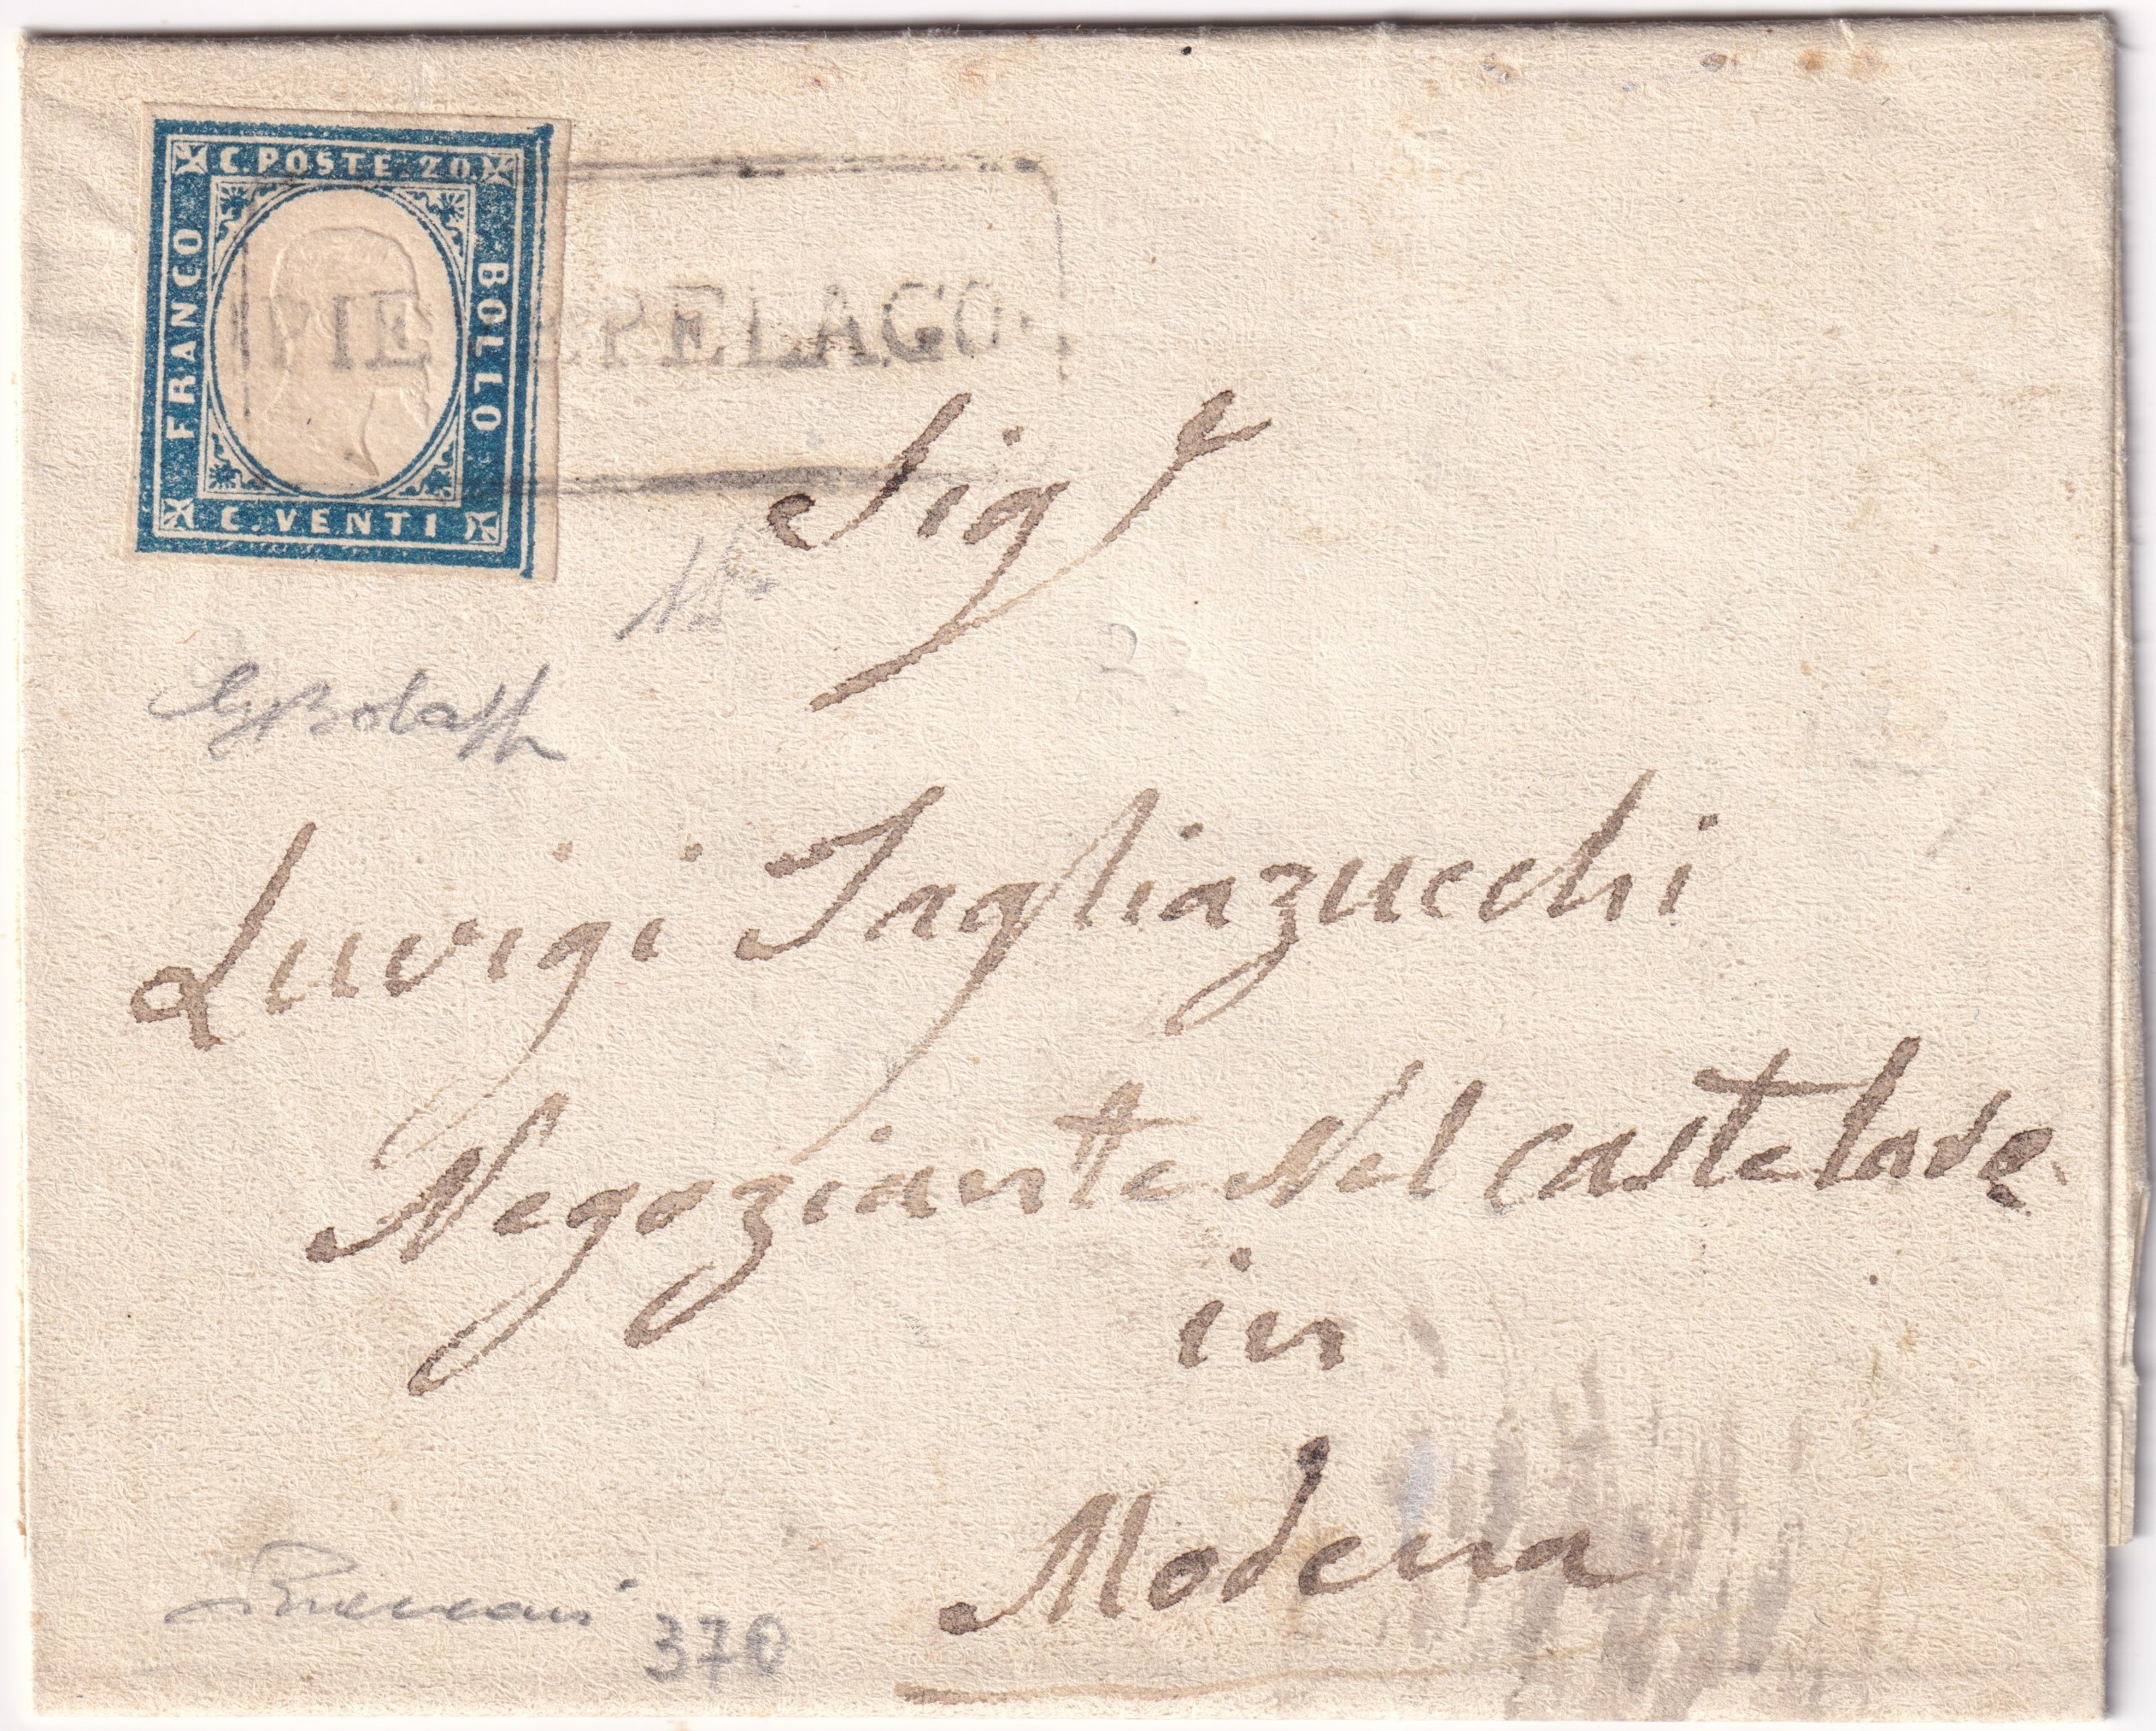 C. POSTE 20.
FRANCO
BOLLO
C. VENTI
PIE EPELAGO
Sig r
Luvigi Tagliazucchi
Negoziante Nel castelare
in
Modena
370